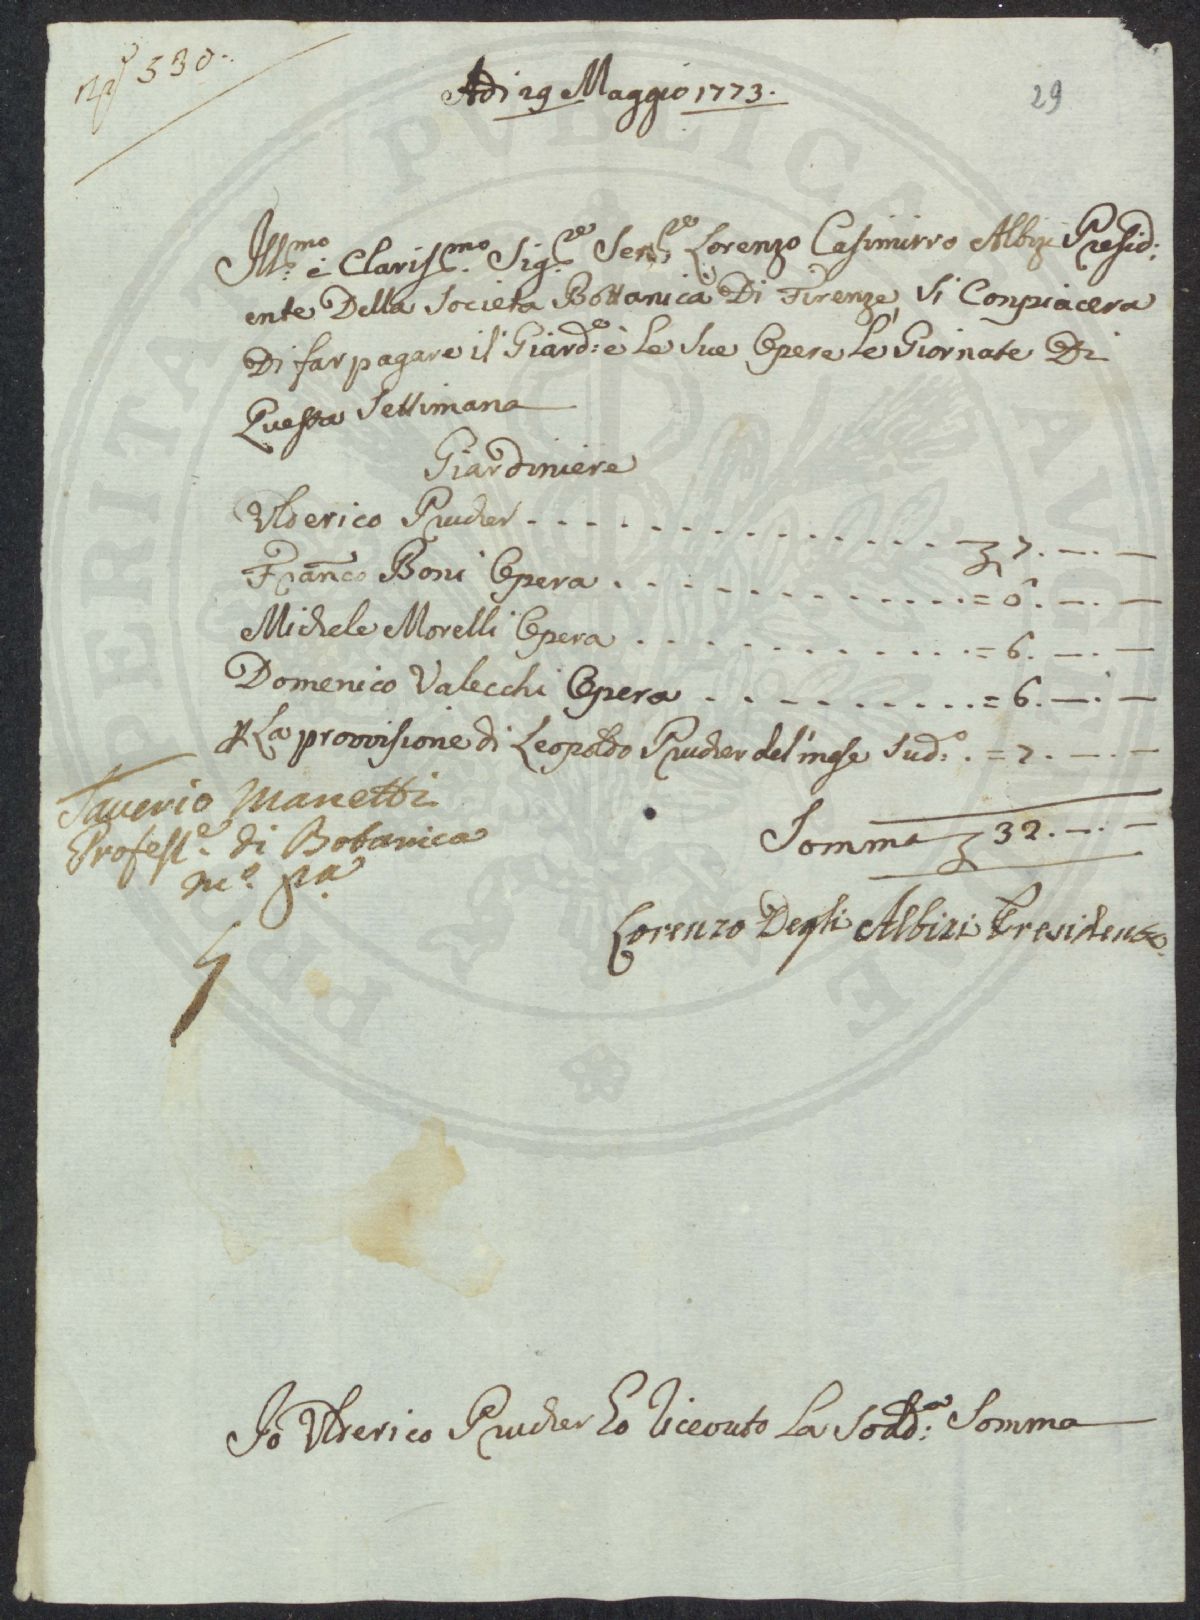 N.º 530.
Adi 29 Maggio 1773.
29
Ill.mo è Claris.mo Sig.re Sen.re Lorenzo Casimirro Albizi Presid:
ente Della Societa Bottanica Di Firenze, si Conpiacera
Di far pagare il Giard.e è Le Sue Opere Le Giornate Di
Questa Settimana
Giardiniere
Ulderico Prucher - - - - - - - - - - - - 7. — . —
Fran.co Boni Opera . - - - - - - - - - - = 6. — . —
Michele Morelli Opera . - - - - - - - - - = 6. — . —
Domenico Valecchi Opera . - - - - - - - - = 6. — . —
p La provvisione di Leopoldo Prucher del mese Sud.o . = 7. — . —
Saverio Manetti
Profess.e di Botanica
m.o p.a
Somma 32. — . —
Lorenzo Degli Albizi Presidente
Io Ulderico Prucher ho ricevuto La Sodd.a Somma
PERITAT PVBLICAE AVGVSTAE